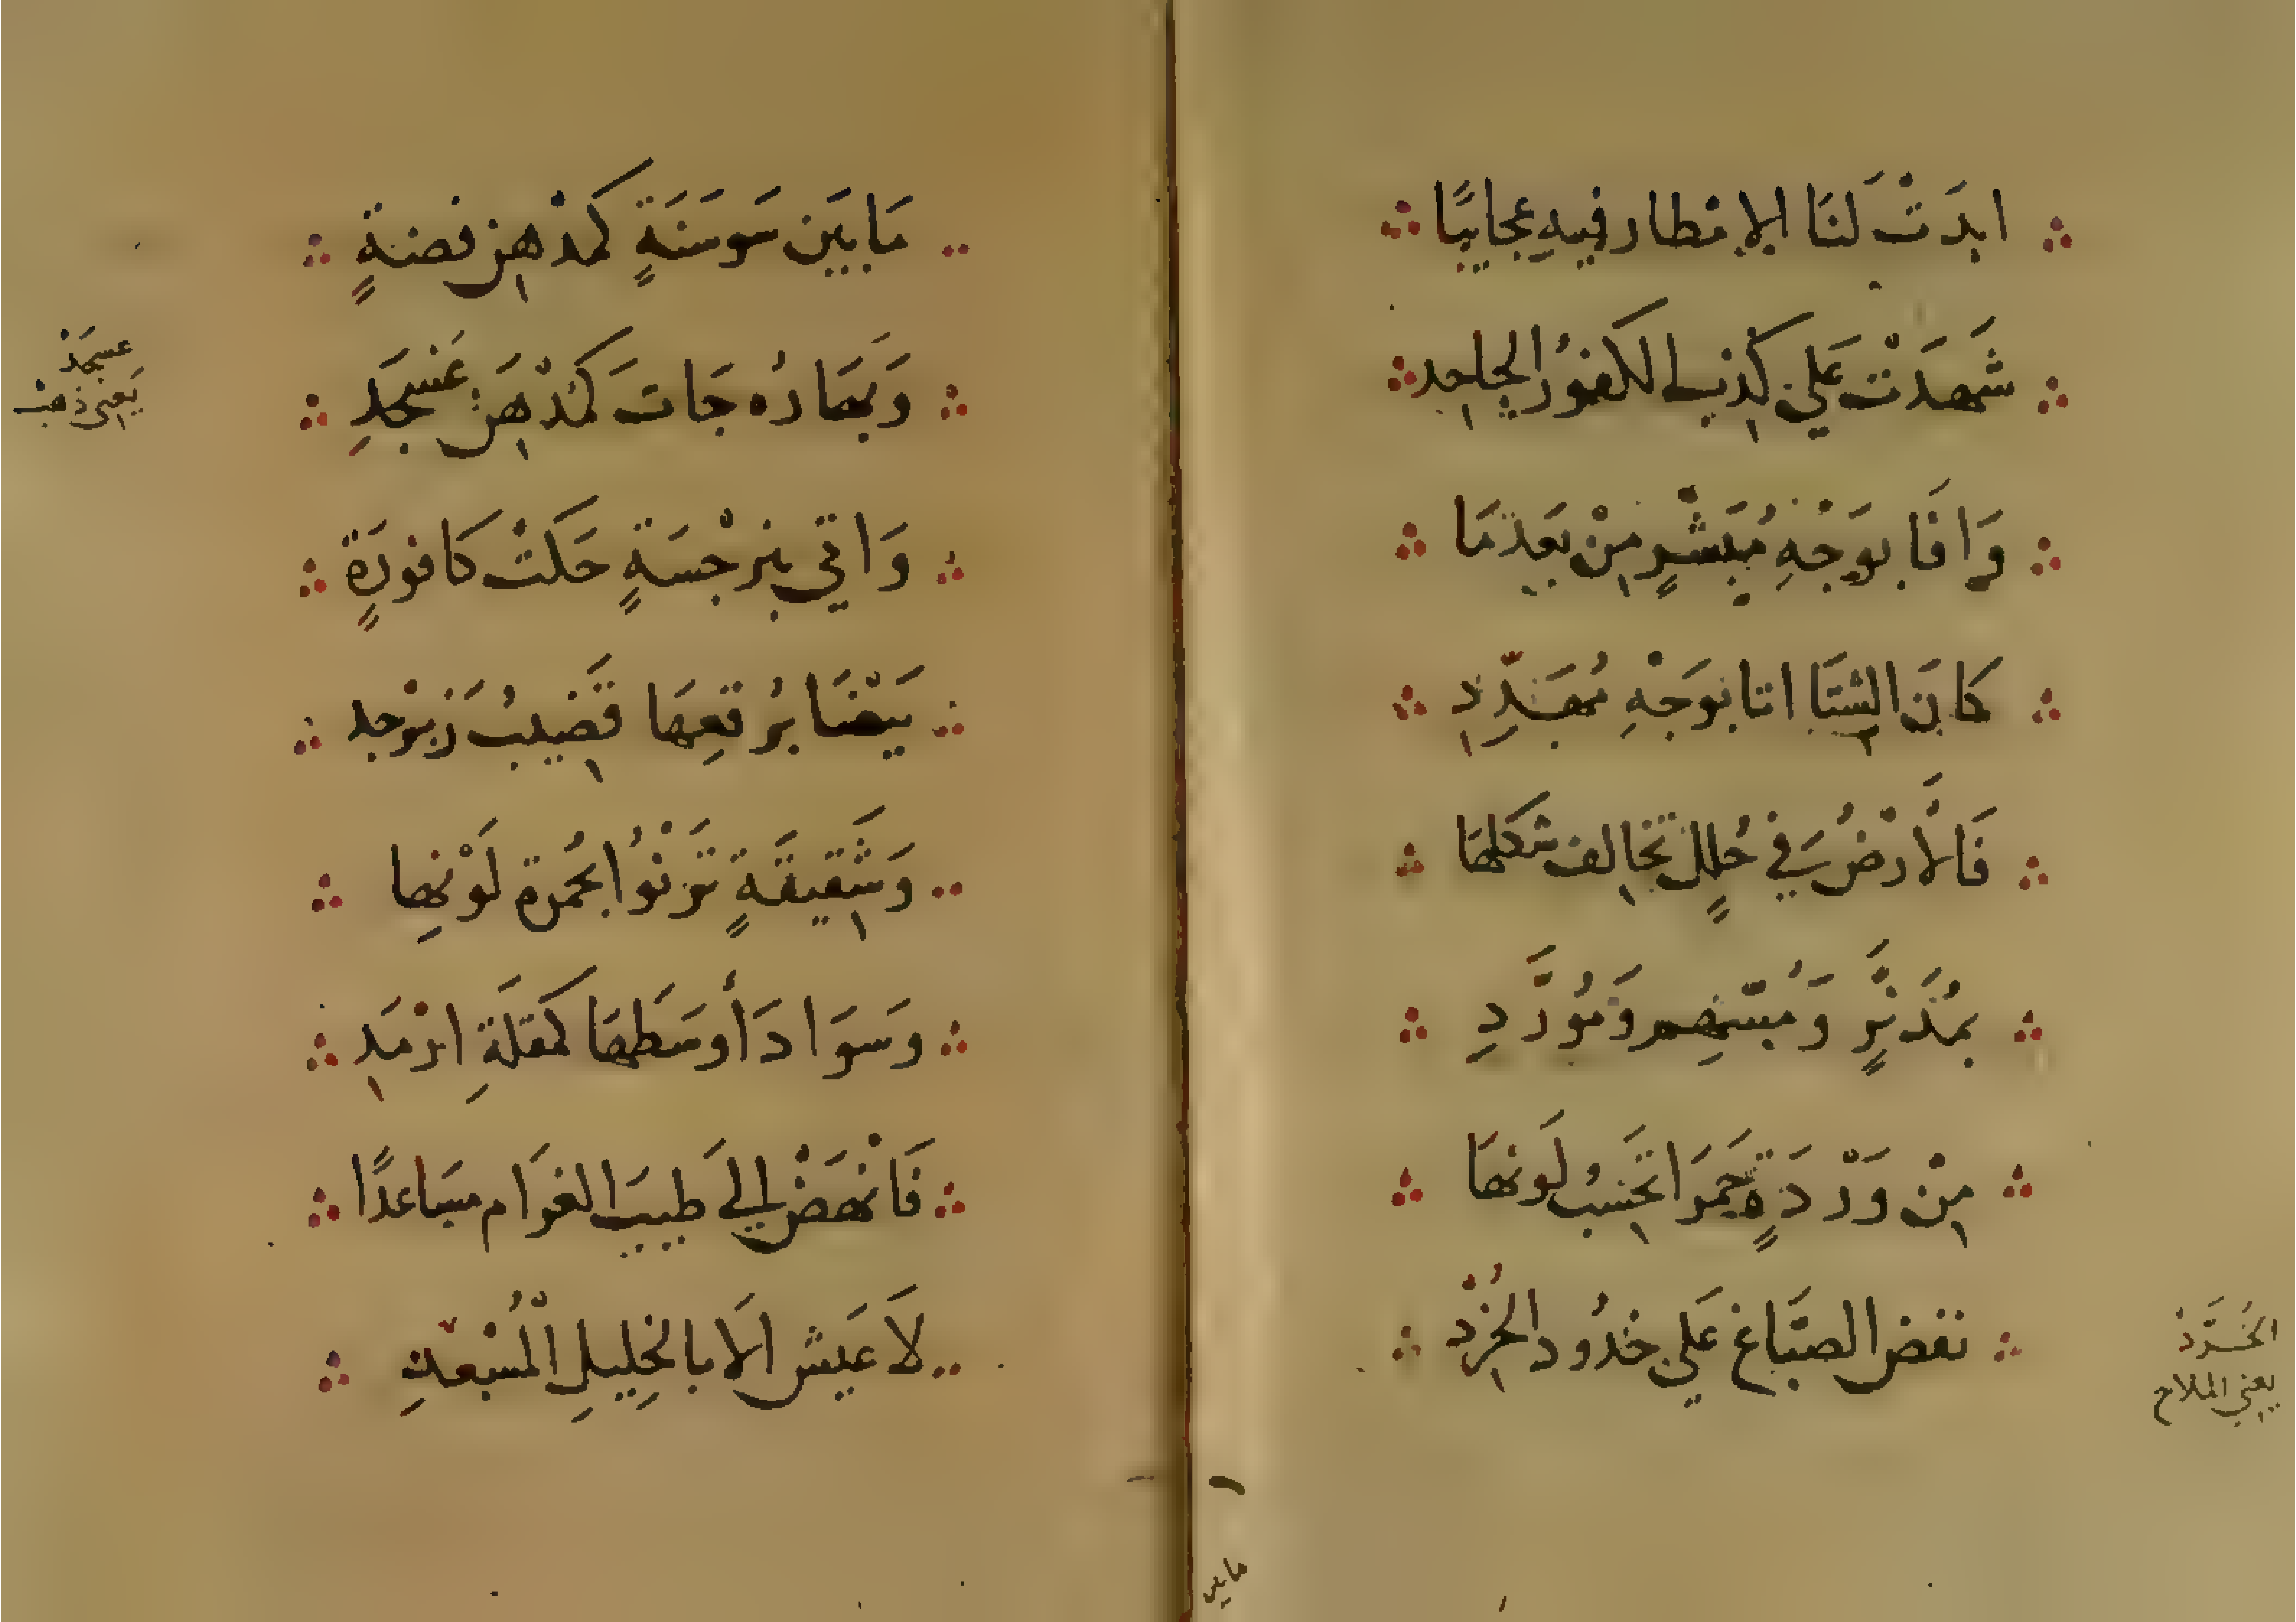 ابدَتْ لَنَا الامْطار فيهِ عجايبًا
شَهدَتْ عَلي كذبِ الكفورُ الجاحِد
وَافَا بوَجْهِ مُبَشْرٍ مِنْ بَعدِ مَا
كانَ الشتَا اتا بوَجْهِ مُهَدِّدِ
فَالأرْضُ في حُللٍ تخالف شكلهَا
بمُدَنَّرٍ وَمُسَّهمِ وَمُورَّدِ
مِنْ وَرْدَةٍ حَمرَا تحَسبُ لَونهَا
نفض الصبَّاغ عَلي خدُود الخُرَّدِ
الخُرَّد
يعني الملاح
مابين
مَا بَين سَوسَنَةٍ كمدْهن فضةٍ
وَبهَارُه جَاتَ كمُدْهَنِ عَسْجَدِ
وَاتي بنرْجسَةٍ حَكتْ كافورَةٍ
بَيْضَا برُقعِهَا قَضيبُ زَبرْجد
وَشَقيقَةٍ تَرْنُوا بحُمرة لَوْنهِا
وسَوَادَ أوسَطهَا كمقلَةِ ارْمَدِ
فَانْهَضْ الَي طيبَ الغوَام مسَاعدًا
لَا عَيش الَا بالخِليلِ الْمُسْعدِ
عسجَد
يَعني ذهَبْ